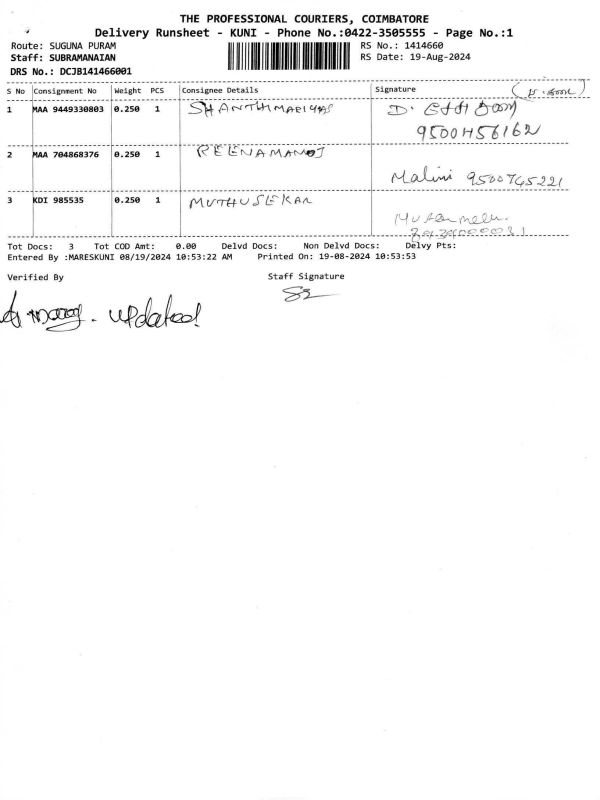 THE PROFESSIONAL COURIERS, COIMBATORE
Delivery Runsheet - KUNI - Phone No.:0422-3505555 - Page No.:1
Route: SUGUNA PURAM RS No.: 1414660
Staff: SUBRAMANAIAN RS Date: 19-Aug-2024
DRS No.: DCJB141466001
S No Consignment No Weight PCS Consignee Details Signature
1 MAA 9449330803 0.250 1 SHANTHI MARIYAS D.
9500456162
2 MAA 704868376 0.250 1 REENAMANOJ
Malini 9500765221
3 KDI 985535 0.250 1 MUTHUSEKAR
Tot Docs: 3 Tot COD Amt: 0.00 Delvd Docs: Non Delvd Docs: Delvy Pts:
Entered By :MARESKUNI 08/19/2024 10:53:22 AM Printed On: 19-08-2024 10:53:53
Verified By Staff Signature
updated!